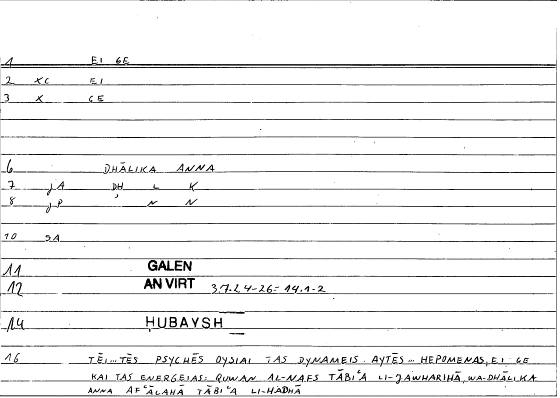 1 EI GE
2 XC EI
3 X GE
6 DHĀLIKA ANNA
7 jA DH L K
8 jP ʾ N N
10 SA
11 GALEN
12 AN VIRT 37.24-26 = 14.1-2
14 ḤUBAYSH
16 TĒI...TĒS PSYCHĒS OYSIAI TAS DYNAMEIS AYTĒS... HEPOMENAS, EI GE
KAI TAS ENERGEIAS: QUWAN AL-NAFS TĀBIʿA LI-JAWHARIHĀ, WA-DHĀLIKA
ANNA AFʿĀLAHĀ TĀBIʿA LI-HĀDHĀ